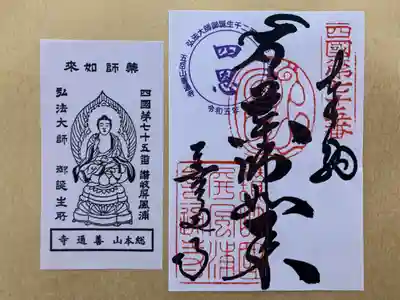 薬師如来
四國第七十五番 讃岐屏風浦
弘法大師 御誕生所
総本山 善通寺
四國第七十五番
奉納
薬師如来
善通寺
弘法大師御誕生千二
四恩
令和五年